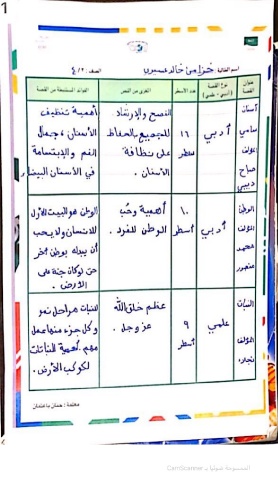 1
اسم الطالبة : خزامى خالد عسيري الصف : ٤/٢
عنوان القصة
نوع القصة (أدبي - علمي)
عدد الأسطر
المغزى من النص
الفوائد المستنبطة من القصة
أسنان
سامي
المؤلف
صباح
ديبي
أدبي
١٦
سطر
النصح والإرشاد
للجميع بالحفاظ
على نظافة
الأسنان .
أهمية تنظيف
الأسنان ، جمال
الفم والإبتسامة
في الأسنان البيضاء
الوطن
المؤلف
محمد
منصور
أدبي
١٠
أسطر
أهمية وحب
الوطن للفرد .
الوطن هو البيت الأول
للانسان ولا يحب
أن يبدله بوطن آخر
حتى لو كان جنة على
الأرض .
النبات
المؤلف
علمي
٩
أسطر
عظم خلق الله
عز وجل .
للنبات مراحل نمو
وكل جزء منها عمل
مهم . أهمية النباتات
لكوكب الأرض .
معلمة : حنان باعثمان
الممسوحة ضوئيا بـ CamScanner